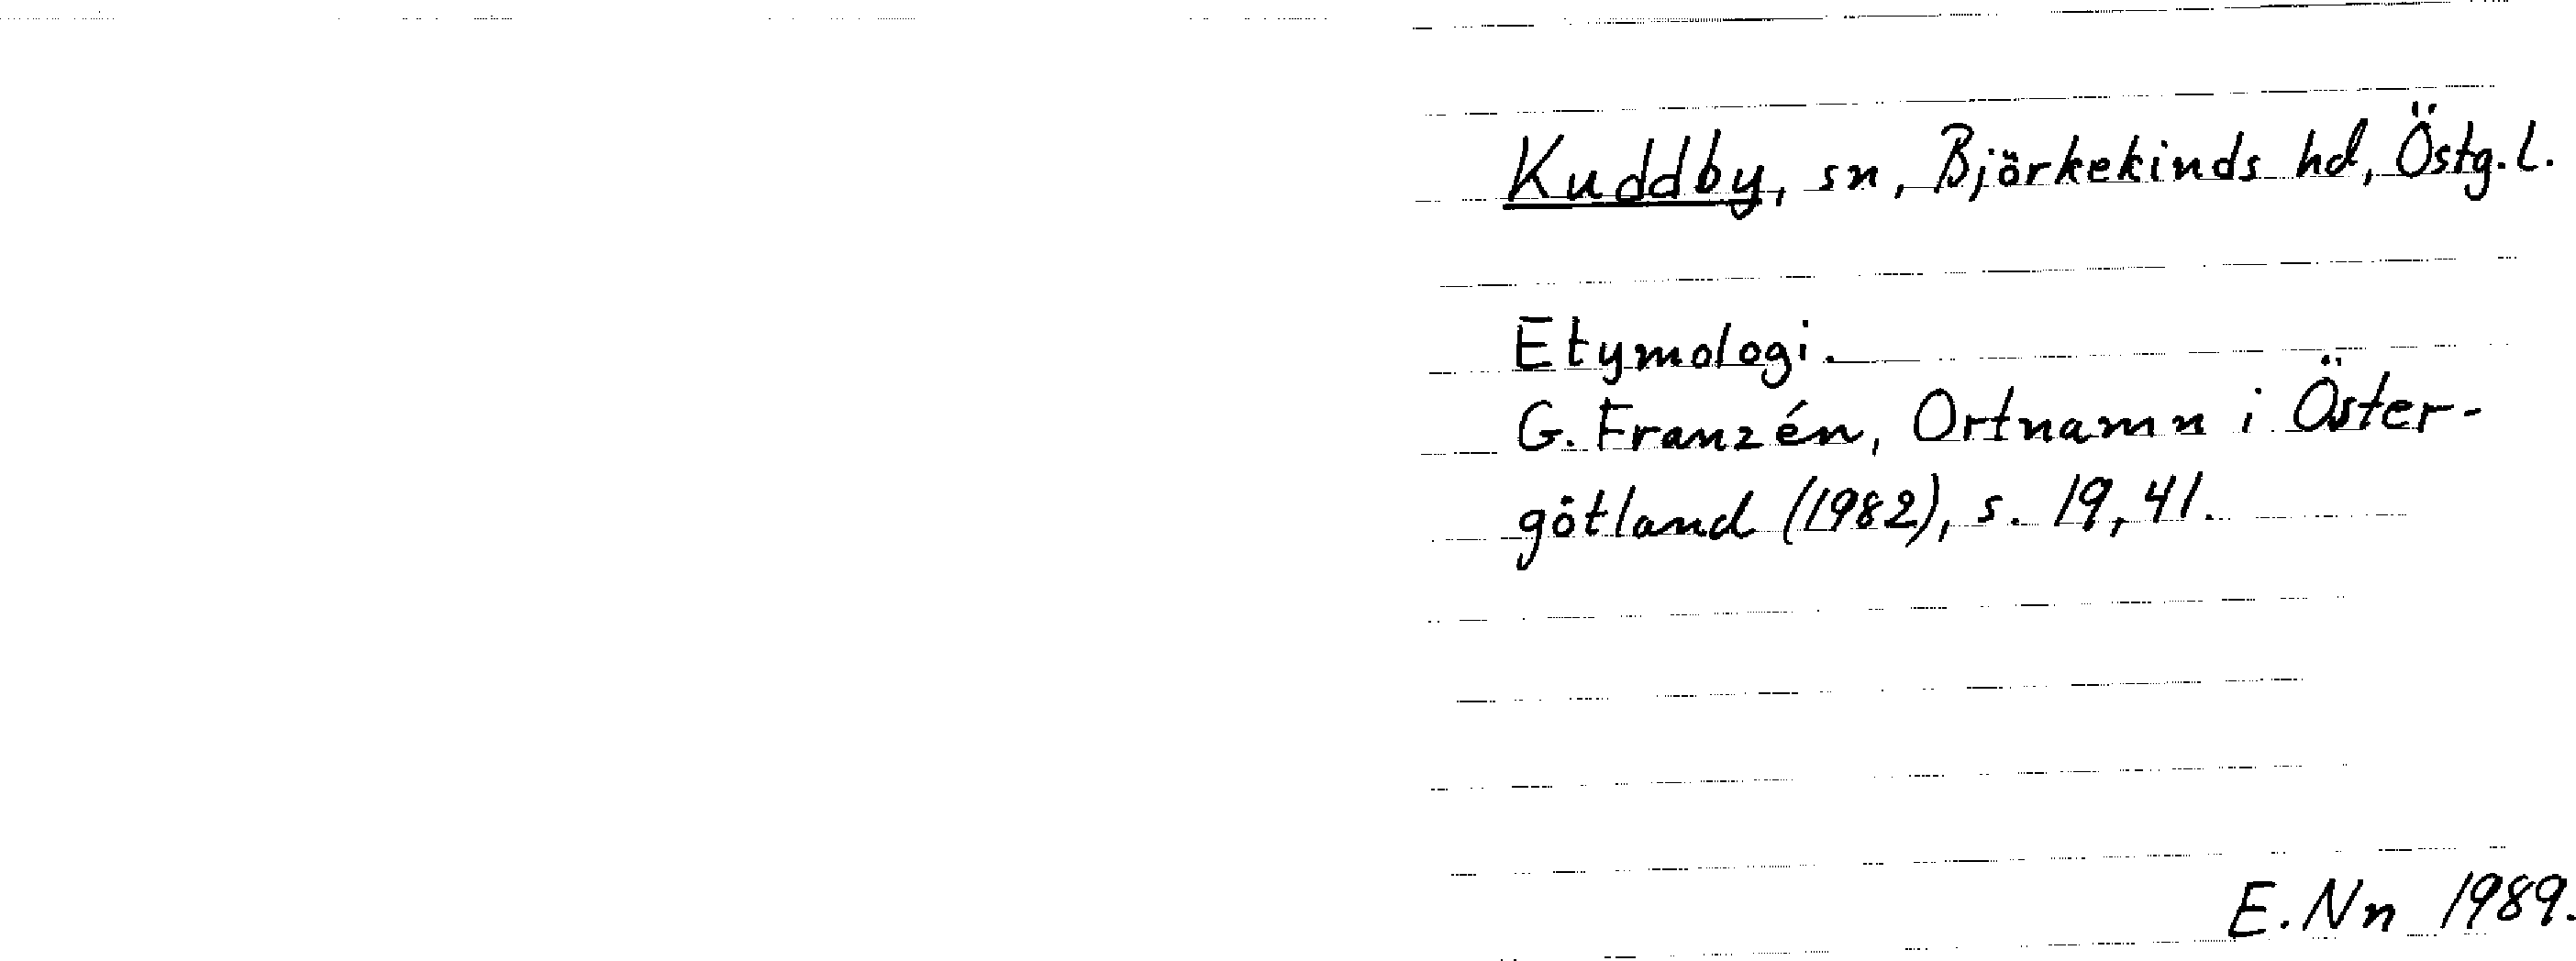 Kuddby, sn, Björkekinds hd, Östg.l.
Etymologi.
G. Franzén, Ortnamn i Öster-
götland (1982), s. 19, 41.
E. Nn 1989.